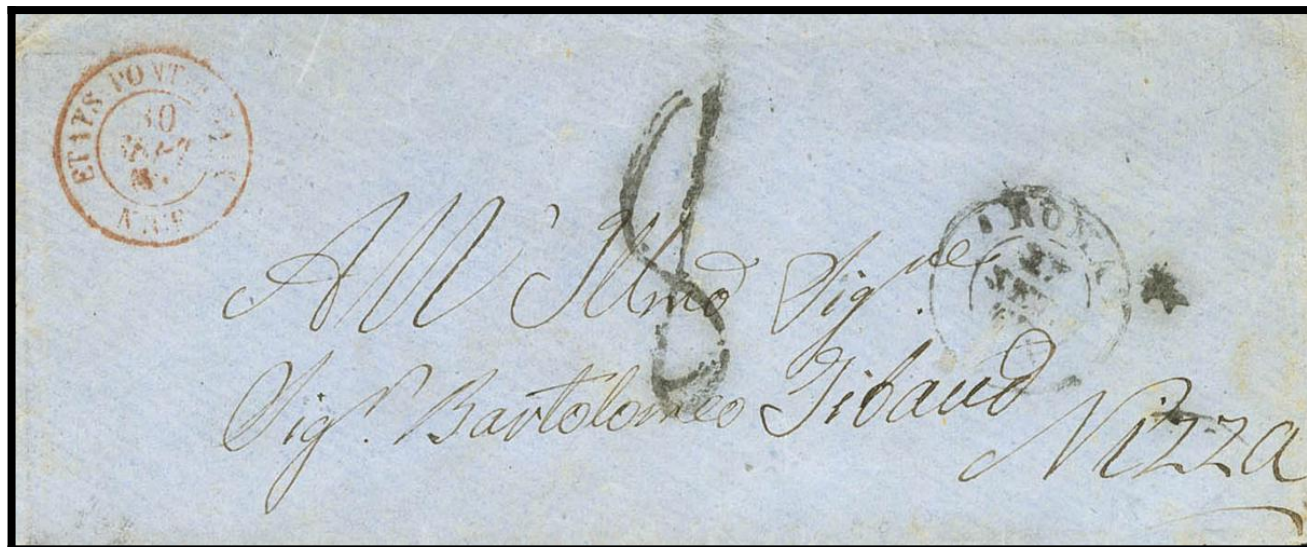 ETATS PONT.
30
NICE
8
ROMA
All' Illmo Sig.re
Sig.r Bartolomeo Tibaud
Nizza